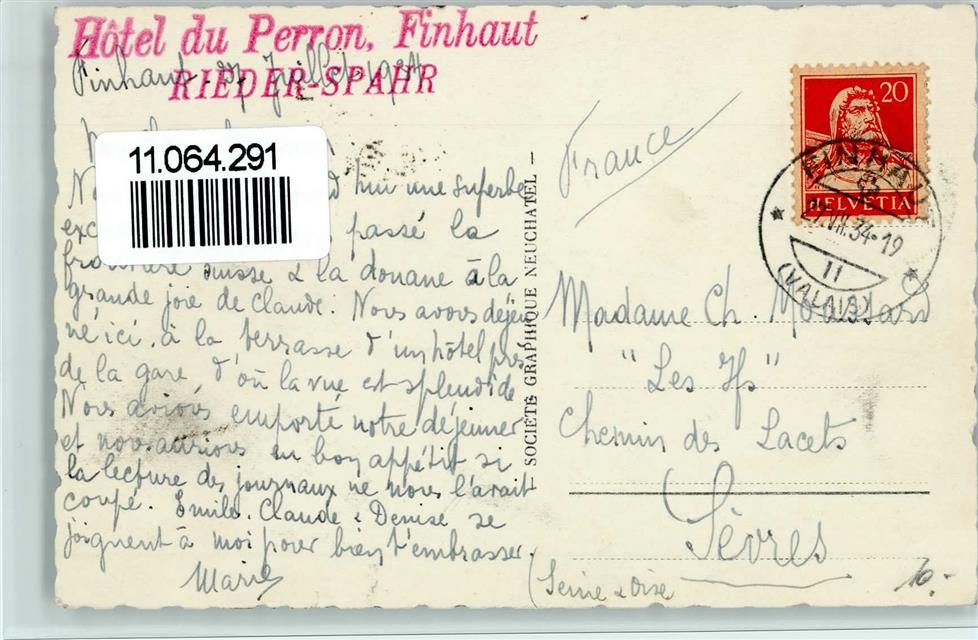 Hôtel du Perron, Finhaut
RIEDER-SPAHR
Finhaut. 27 Juillet 1934
11.064.291
une superbe
passé la
frontière suisse & la douane à la
grande joie de Claude. Nous avons déjeu
né ici, à la terrasse d'un hôtel près
de la gare, d'où la vue est splendide
Nous avions emporté notre déjeuner
et nous aurions eu bon appétit si
la lecture des journaux ne nous l'avait
coupé. Emile, Claude & Denise se
joignent à moi pour bien t'embrasser.
Marie
— SOCIÉTÉ GRAPHIQUE NEUCHATEL —
France
20
HELVETIA
FINHAUT
27.VII.34-19
11
(VALAIS)
Madame Ch.
"Les Ifs"
Chemin des Lacets
Sèvres
(Seine & Oise
10.-